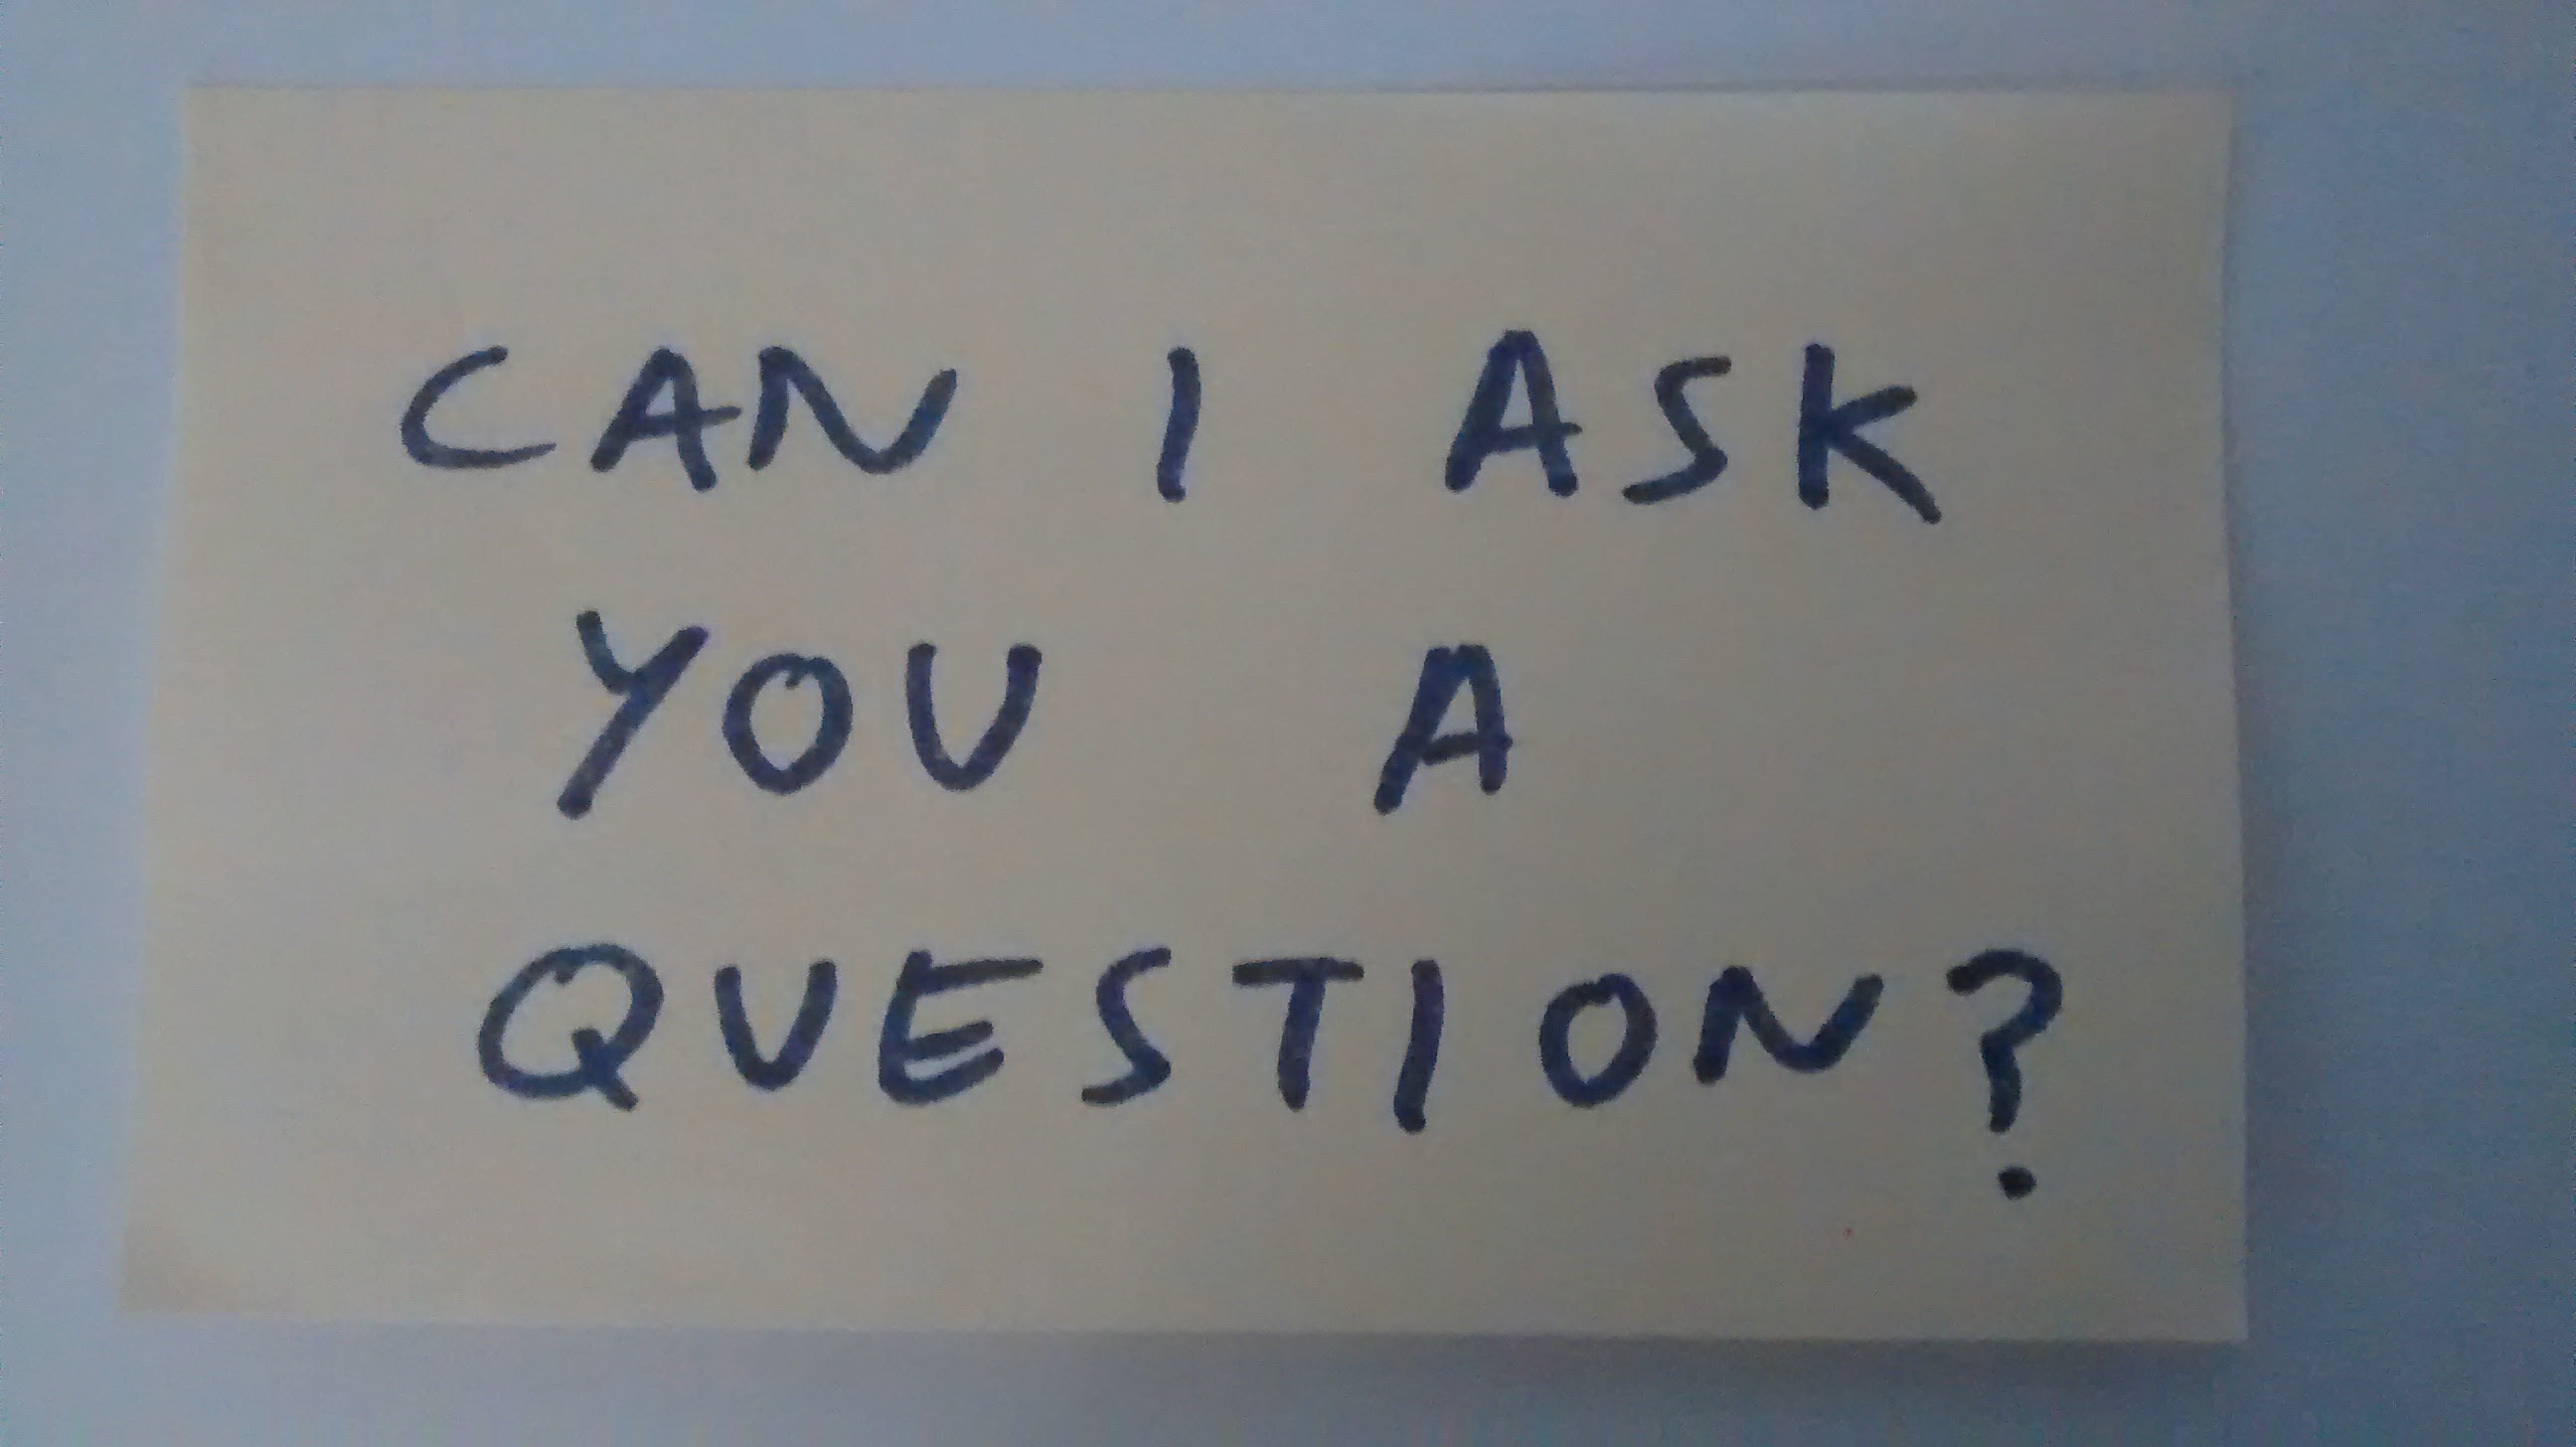 CAN I ASK
YOU A
QUESTION?